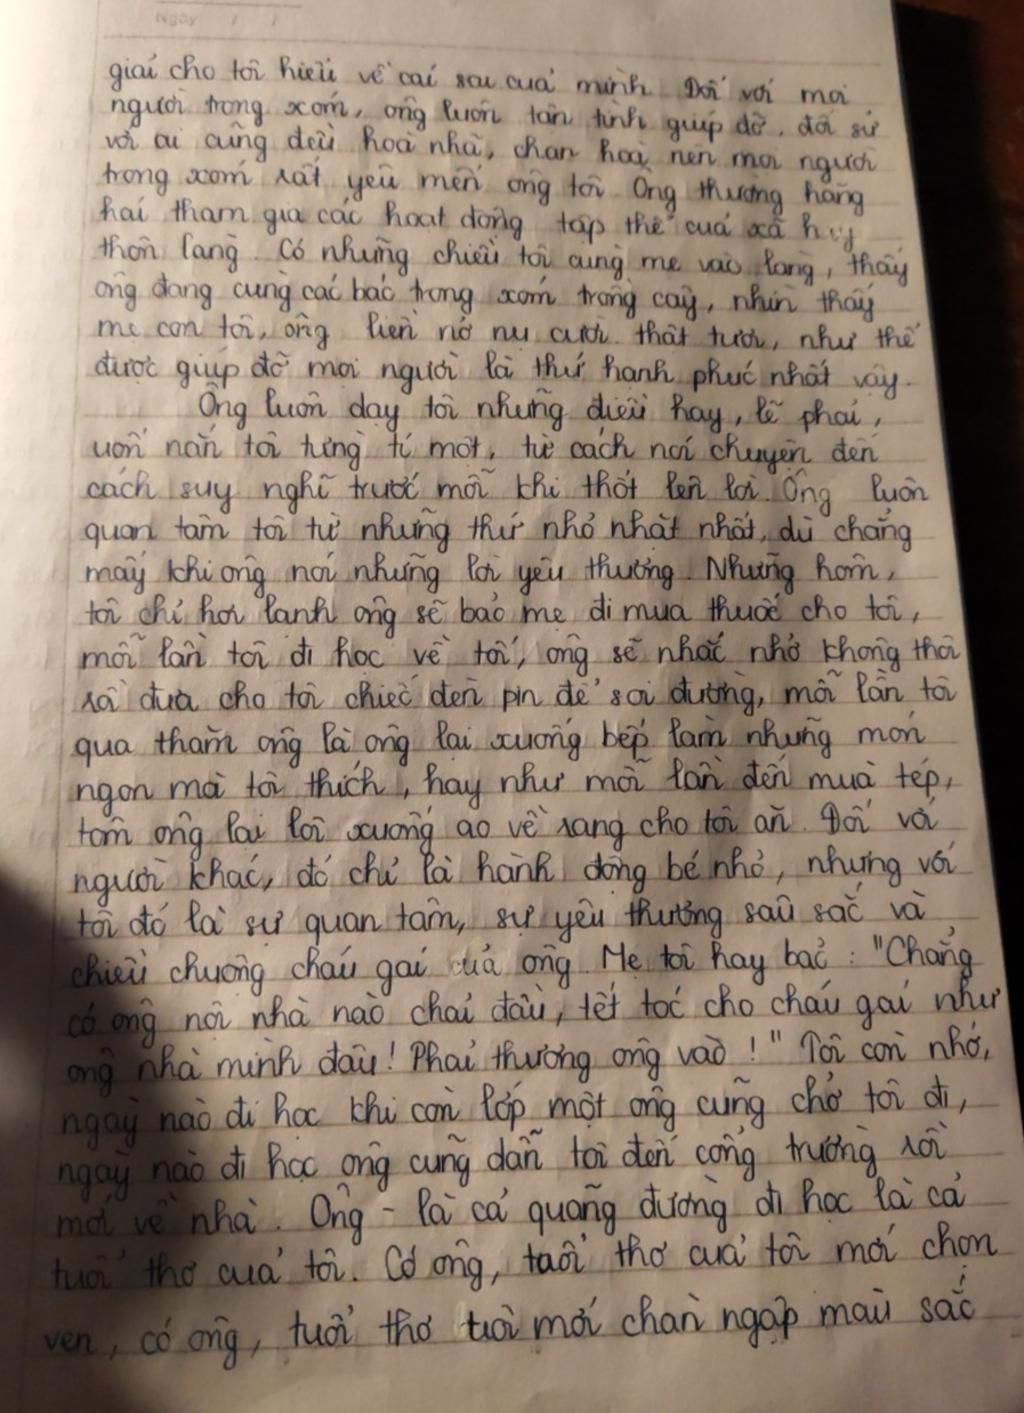 Ngày / /
giải cho tôi hiểu về cái sai của mình. Đối với mọi
người trong xóm, ông luôn tận tình giúp đỡ, đối sử
với ai cũng đều hoà nhã, chan hoà nên mọi người
trong xóm rất yêu mến ông tôi. Ông thường hăng
hái tham gia các hoạt động tập thể của xã hay
thôn làng. Có những chiều tôi cùng mẹ vào làng, thấy
ông đang cùng các bác trong xóm trồng cây, nhìn thấy
mẹ con tôi, ông liền nở nụ cười thật tươi, như thể
được giúp đỡ mọi người là thứ hạnh phúc nhất vậy.
Ông luôn dạy tôi những điều hay, lẽ phải,
uốn nắn tôi từng tí một, từ cách nói chuyện đến
cách suy nghĩ trước mỗi khi thốt lên lời. Ông luôn
quan tâm tôi từ những thứ nhỏ nhặt nhất, dù chẳng
mấy khi ông nói những lời yêu thương. Những hôm,
tôi chỉ hơi lạnh ông sẽ bảo mẹ đi mua thuốc cho tôi,
mỗi lần tôi đi học về tối, ông sẽ nhắc nhở không thôi
rồi đưa cho tôi chiếc đèn pin để soi đường, mỗi lần tôi
qua thăm ông là ông lại xuống bếp làm những món
ngon mà tôi thích, hay như mỗi lần đến mùa tép,
tôm ông lại lội xuống ao về rang cho tôi ăn. Đối với
người khác, đó chỉ là hành động bé nhỏ, nhưng với
tôi đó là sự quan tâm, sự yêu thương sâu sắc và
chiều chuộng cháu gái của ông. Mẹ tôi hay bảo : "Chẳng
có ông nội nhà nào chải đầu, tết tóc cho cháu gái như
ông nhà mình đâu! Phải thương ông vào !" Tôi còn nhớ,
ngày nào đi học khi còn lớp một ông cũng chở tôi đi,
ngày nào đi học ông cũng dẫn tôi đến cổng trường rồi
mới về nhà. Ông - là cả quãng đường đi học là cả
tuổi thơ của tôi. Có ông, tuổi thơ của tôi mới chọn
vẹn, có ông, tuổi thơ tôi mới chàn ngập màu sắc